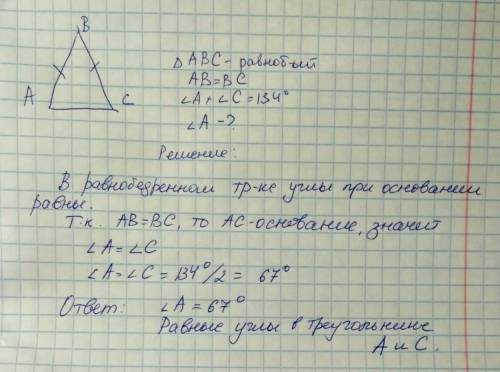 B
A
C
Δ ABC - равноб-ый
AB=BC
∠A+∠C=134°
∠A -?
Решение:
В равнобедренном тр-ке углы при основании
равны.
Т.к. AB=BC, то AC-основание, значит
∠A=∠C
∠A=∠C=134°/2 = 67°
Ответ: ∠A = 67°
Равные углы в треугольнике
A и C.